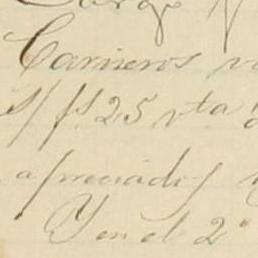 Cargo
Carneros
S/ fs. 25 vta
apreciados
Y en el 2°